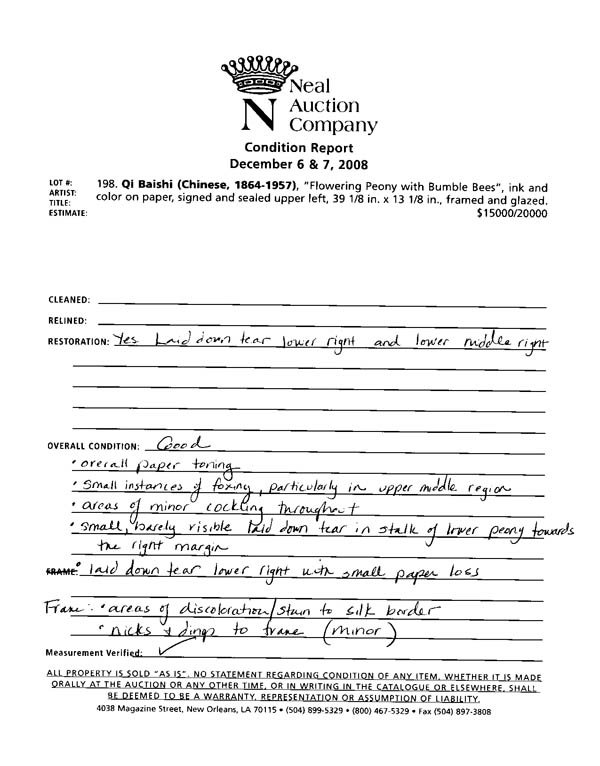 Neal
N Auction
Company
Condition Report
December 6 & 7, 2008
LOT #: 198. Qi Baishi (Chinese, 1864-1957), "Flowering Peony with Bumble Bees", ink and
ARTIST: color on paper, signed and sealed upper left, 39 1/8 in. x 13 1/8 in., framed and glazed.
TITLE:
ESTIMATE: $15000/20000
CLEANED:
RELINED:
RESTORATION: Yes Laid down tear lower right and lower middle right
OVERALL CONDITION: Good
• overall paper toning
• Small instances of foxing, particularly in upper middle region
• areas of minor cockling throughout
• small, barely visible laid down tear in stalk of lower peony towards
the right margin
FRAME: • laid down tear lower right with small paper loss
Frame: • areas of discoloration/stain to silk border
• nicks & dings to frame (minor)
Measurement Verified: ✓
ALL PROPERTY IS SOLD "AS IS". NO STATEMENT REGARDING CONDITION OF ANY ITEM, WHETHER IT IS MADE
ORALLY AT THE AUCTION OR ANY OTHER TIME, OR IN WRITING IN THE CATALOGUE OR ELSEWHERE, SHALL
BE DEEMED TO BE A WARRANTY, REPRESENTATION OR ASSUMPTION OF LIABILITY.
4038 Magazine Street, New Orleans, LA 70115 • (504) 899-5329 • (800) 467-5329 • Fax (504) 897-3808